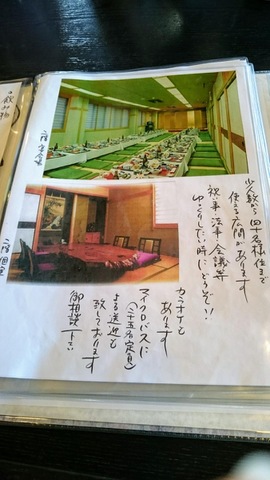 少人数から四十名様位まで
使える広間があります
祝い事 法事 会議等
ゆっくりしたい時にどうぞ!!
カラオケも
あります
マイクロバスに
(二十五名定員)
よる送迎も
致しております
御相談下さい
二階 宴会
二階 個室
・飲み物